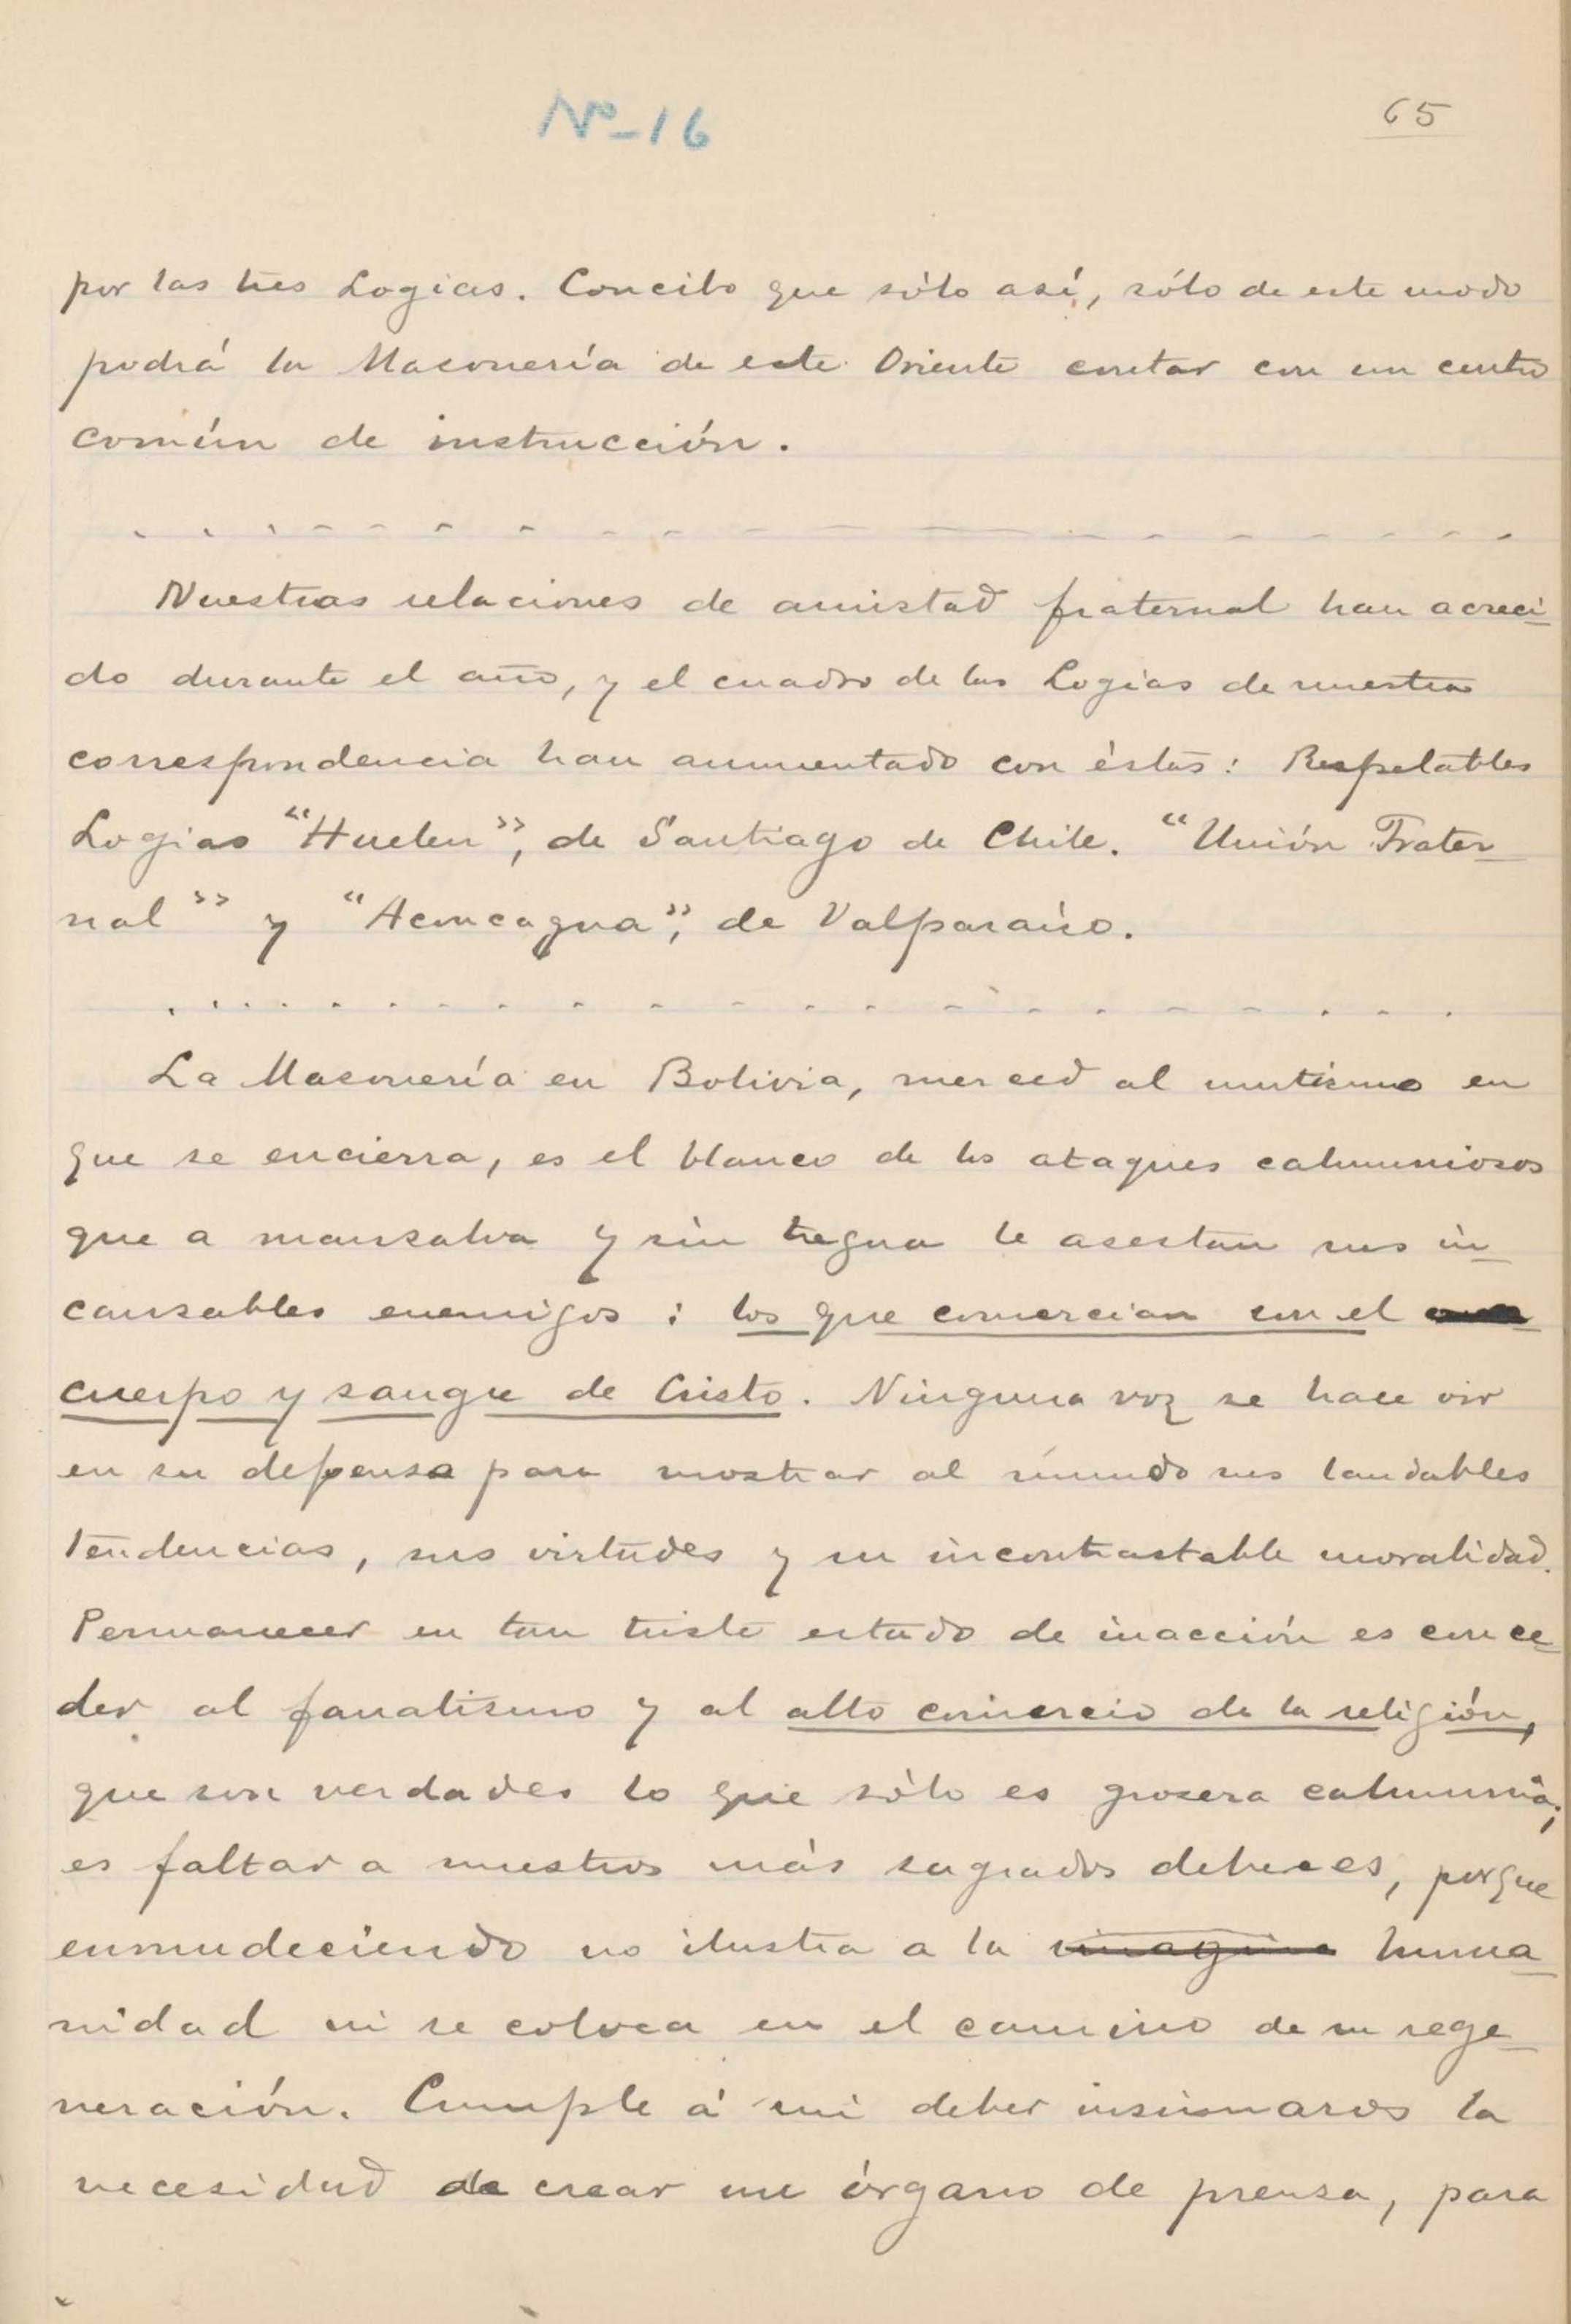 Nº-16
65
por las tres Logias. Concibo que sólo así, sólo de este modo
podrá la Masonería de este Oriente contar con un centro
común de instrucción.
Nuestras relaciones de amistad fraternal han acreci-
do durante el año, y el cuadro de las Logias de nuestra
correspondencia han aumentado con éstas: Respetables
Logias "Huelen", de Santiago de Chile. "Unión Frater-
nal" y "Aconcagua", de Valparaíso.
La Masonería en Bolivia, merced al mutismo en
que se encierra, es el blanco de los ataques calumniosos
que a mansalva y sin tregua le asestan sus in-
cansables enemigos: los que comercian con el
cuerpo y sangre de Cristo. Ninguna voz se hace oir
en su defensa para mostrar al mundo sus laudables
tendencias, sus virtudes y su incontrastable moralidad.
Permanecer en tan triste estado de inacción es conce-
der al fanatismo y al alto comercio de la religión,
que son verdades lo que sólo es grosera calumnia;
es faltar a nuestros más sagrados deberes, porque
enmudeciendo no ilustra a la imagina huma-
nidad ni se coloca en el camino de su rege-
neración. Cumple á mi deber insinuaros la
necesidad de crear un órgano de prensa, para